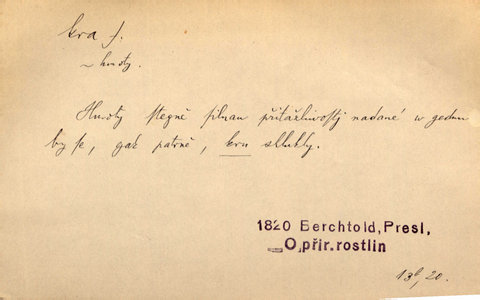 kra f.
~ hmoty.
Hmoty stegně silnau přitažliwostj nadané w gednu
by se, gak patrně, kru sklukly.
1820 Berchtold, Presl,
O přir. rostlin
13b, 20.